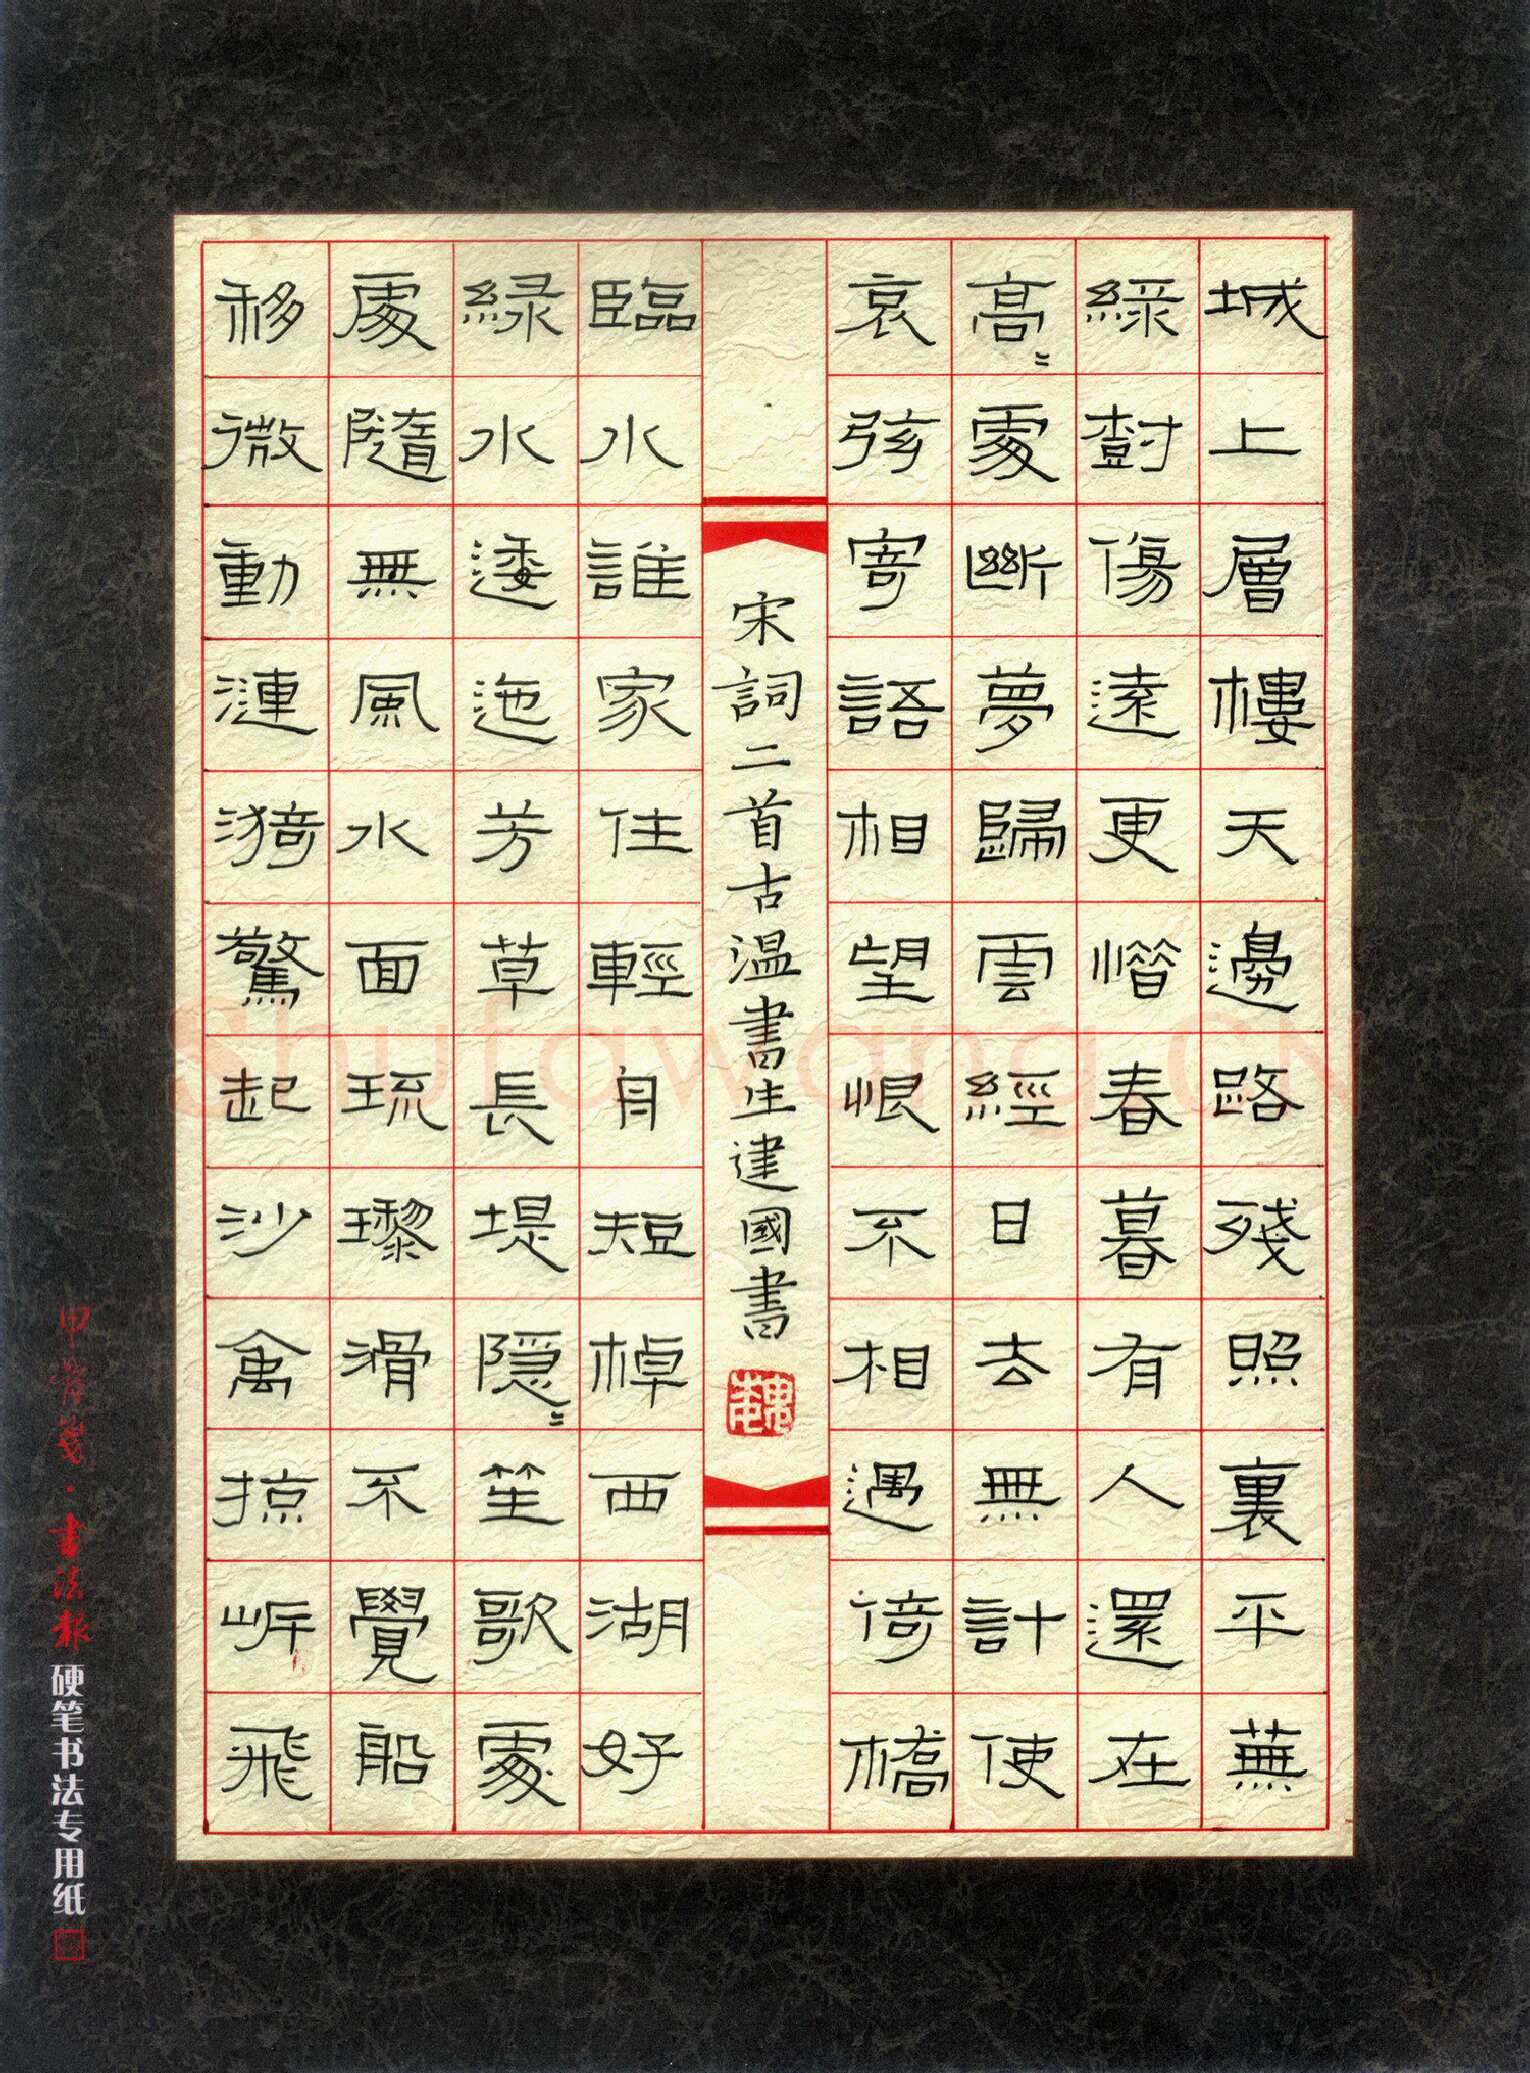 城上層樓天邊路殘照裏平蕪
綠樹傷遠更惜春暮有人還在
高〻處斷夢歸雲經日去無計使
哀弦寄語相望恨不相遇倚橋
宋詞二首古溫書生建國書
臨水誰家住輕舟短棹西湖好
緑水逶迤芳草長堤隱〻笙歌處
處隨無風水面琉璃滑不覺船
移微動漣漪驚起沙禽掠岸飛
甲骨箋·書法報硬笔书法专用纸
Shufawang.CN